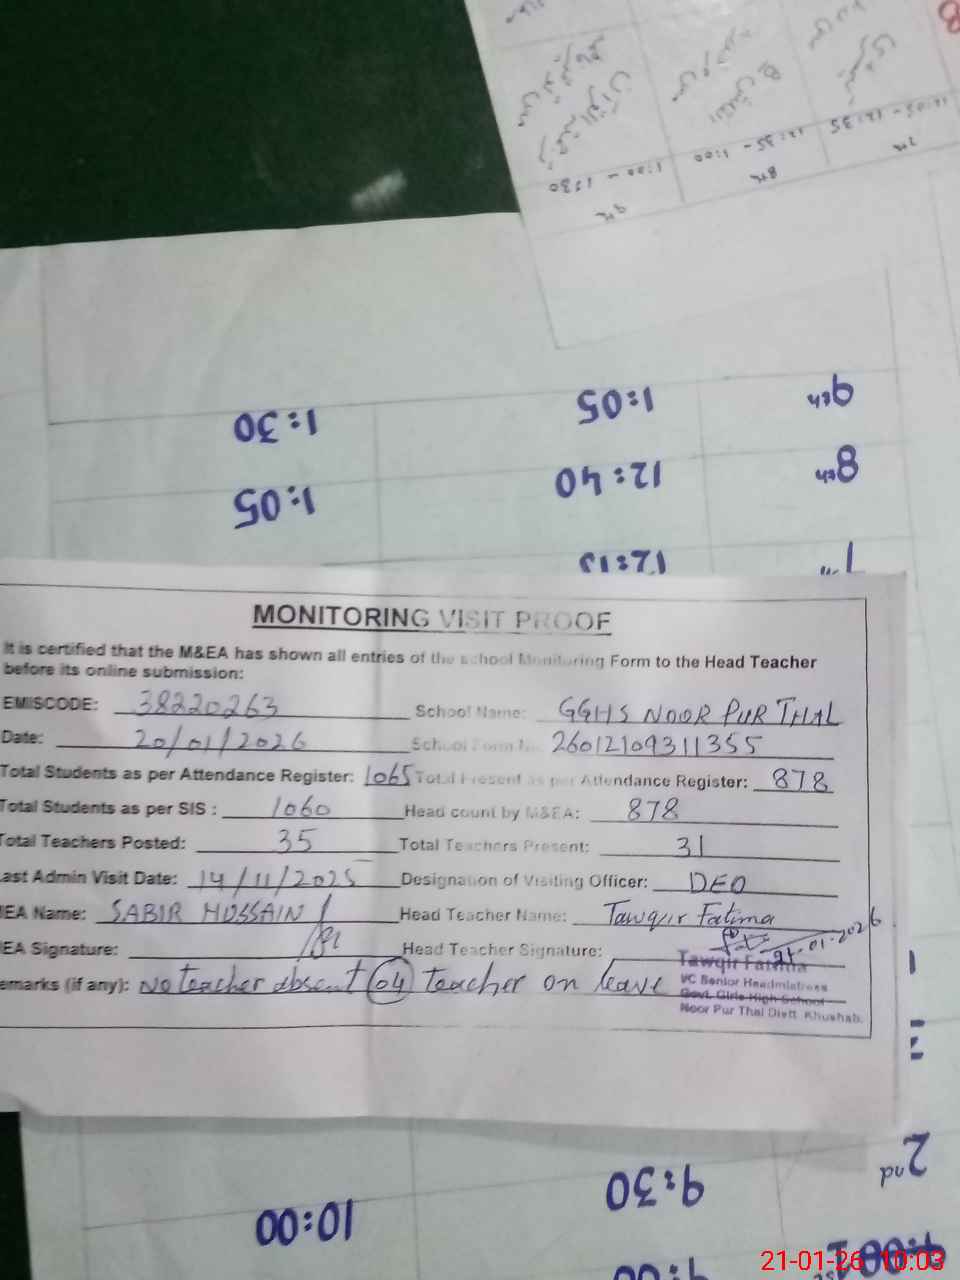 9th 1:00 - 1:30
8th 12:35 - 1:00
7th 12:05 - 12:35
9th 1:05 1:30
8th 12:40 1:05
MONITORING VISIT PROOF
It is certified that the M&EA has shown all entries of the school Monitoring Form to the Head Teacher
before its online submission:
EMISCODE: 38220263 School Name: GGHS NOOR PUR THAL
Date: 20/01/2026 School Form N 26012109311355
Total Students as per Attendance Register: 1065 Total Present as per Attendance Register: 878
Total Students as per SIS : 1060 Head count by M&EA: 878
Total Teachers Posted: 35 Total Teachers Present: 31
ast Admin Visit Date: 14/11/2025 Designation of Visiting Officer: DEO
EA Name: SABIR HUSSAIN Head Teacher Name: Tawqir Fatima
EA Signature: Head Teacher Signature: 21-01-2026
emarks (if any): No teacher absent 04 teacher on leave
Tawqir Fatima
VC Senior Headmistress
Govt. Girls High School
Noor Pur Thal Distt. Khushab.
2nd 9:30 10:00
9:00
21-01-26 10:03